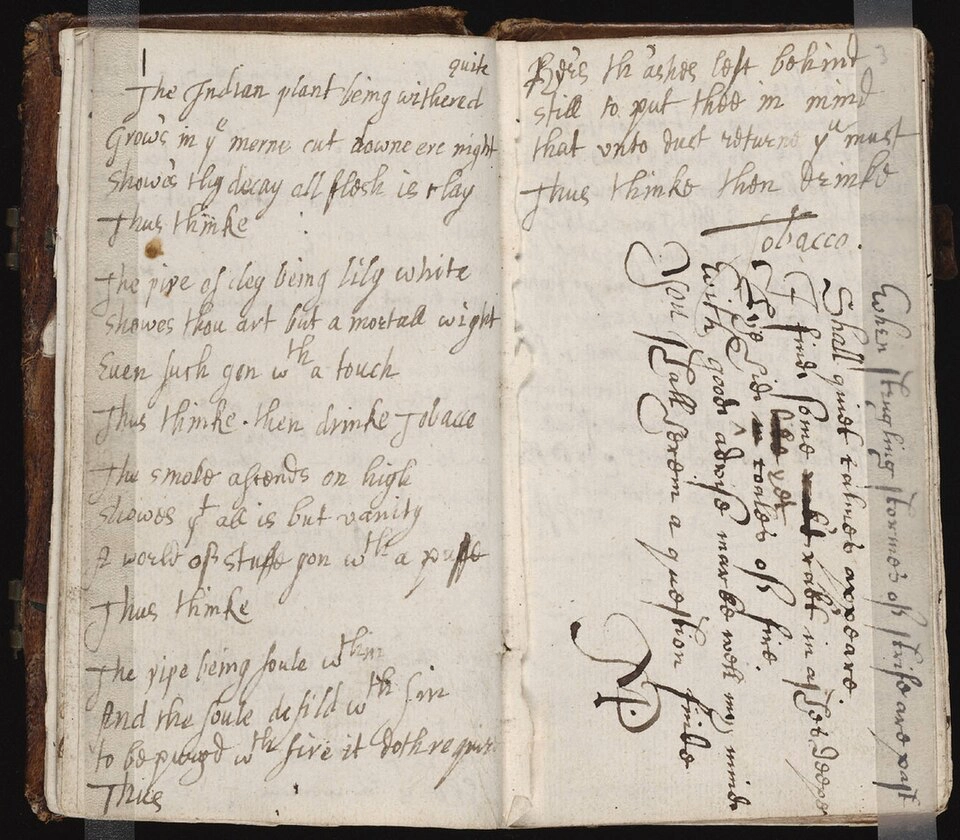 1
quite
The Indian plant being withered
Grow's in yᵉ morne cut downe ere night
Showes thy decay all flesh is clay
Thus thinke
The pipe of cley being lily white
Showes thou art but a mortall wight
Even such gon wᵗʰ a touch
Thus thinke. then drinke Tobacco
The smoke ascends on high
Showes yᵗ all is but vanity
A world of stuffe gon wᵗʰ a puffe
Thus thinke
The pipe being foule wᵗʰin
And the soule defild wᵗʰ sin
to be purgd wᵗʰ fire it doth require
Thus
3
th'ashes left behind
still to put thee in mind
that unto dust returne yᵘ must
Thus thinke then drinke
Tobacco.
When strugling stormes of strife are past
Shall quiet calmes appeare.
I find some rakt in ashes deepe
coales of fire.
With good advise marke well my minde
You shall herein a question finde